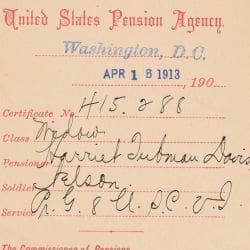 United States Pension Agency,
Washington, D.C.
APR 16 1913 190
Certificate No. 415.288
Class Widow
Pensioner Harriet Tubman Davis
Soldier Nelson
Service P. G. 8 U. S. C. V. I.
The Commissioner of Pensions